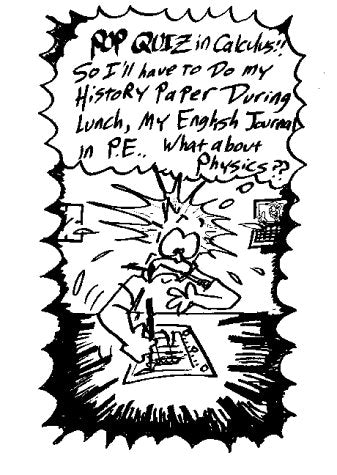 POP QUIZ in Calculus!!
So I'll have to Do my
HistoRy PapeR During
Lunch, My English Journal
in P.E.. What about
Physics??